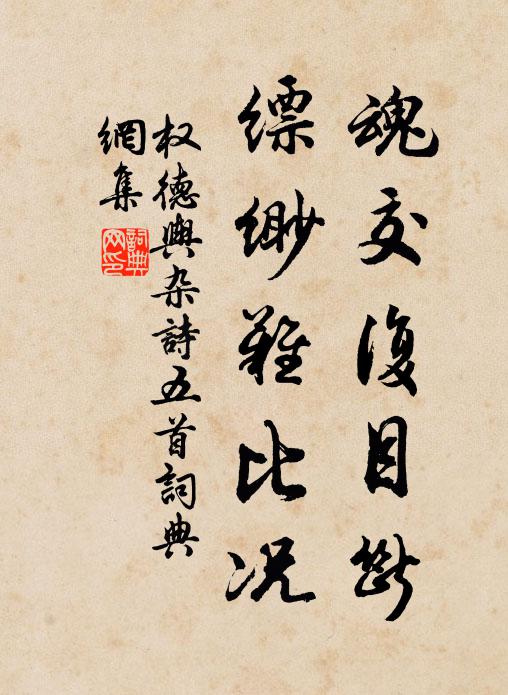 魂交復目斷
縹緲難比况
权德輿杂詩五首詞典
網集
詞典
网印